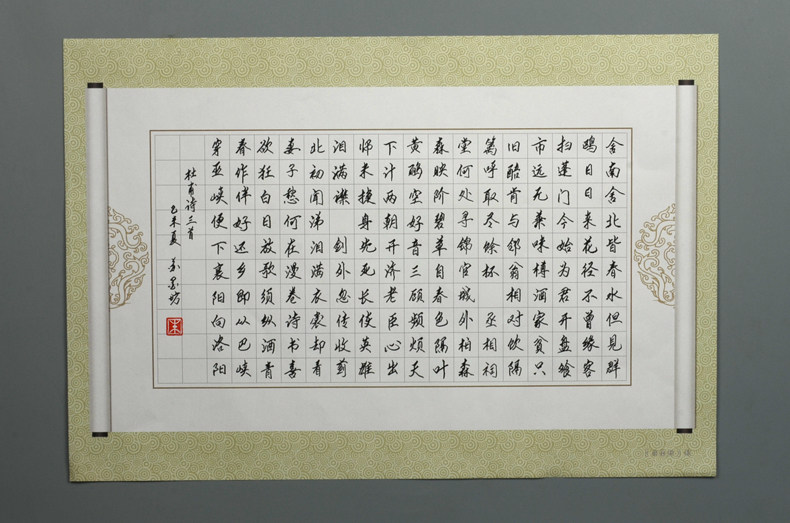 舍南舍北皆春水但见群
鸥日日来花径不曾缘客
扫蓬门今始为君开盘飧
市远无兼味樽酒家贫只
旧醅肯与邻翁相对饮隔
篱呼取尽馀杯 丞相祠
堂何处寻锦官城外柏森
森映阶碧草自春色隔叶
黄鹂空好音三顾频烦天
下计两朝开济老臣心出
师未捷身先死长使英雄
泪满襟 剑外忽传收蓟
北初闻涕泪满衣裳却看
妻子愁何在漫卷诗书喜
欲狂白日放歌须纵酒青
春作伴好还乡即从巴峡
穿巫峡便下襄阳向洛阳
杜甫诗三首
己未夏